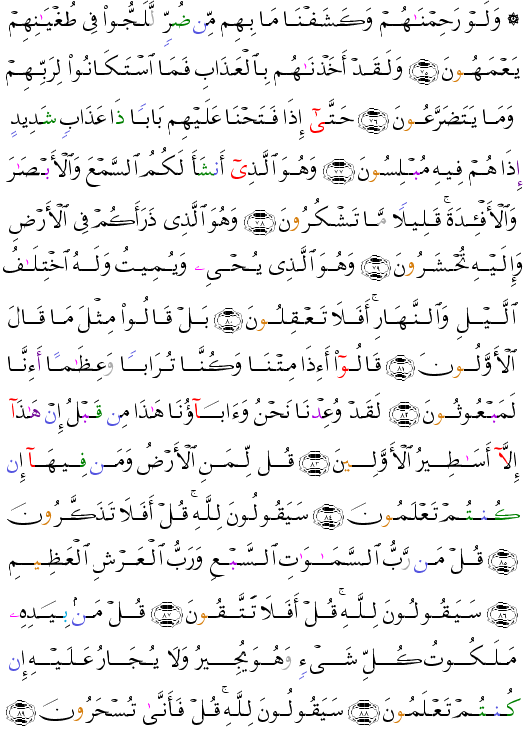 ۞ وَلَوْ رَحِمْنَـٰهُمْ وَكَشَفْنَا مَا بِهِم مِّن ضُرٍّۢ لَّلَجُّوا۟ فِى طُغْيَـٰنِهِمْ
يَعْمَهُونَ ﴿٧٥﴾ وَلَقَدْ أَخَذْنَـٰهُم بِٱلْعَذَابِ فَمَا ٱسْتَكَانُوا۟ لِرَبِّهِمْ
وَمَا يَتَضَرَّعُونَ ﴿٧٦﴾ حَتَّىٰٓ إِذَا فَتَحْنَا عَلَيْهِم بَابًۭا ذَا عَذَابٍۢ شَدِيدٍ
إِذَا هُمْ فِيهِ مُبْلِسُونَ ﴿٧٧﴾ وَهُوَ ٱلَّذِىٓ أَنشَأَ لَكُمُ ٱلسَّمْعَ وَٱلْأَبْصَـٰرَ
وَٱلْأَفْـِٔدَةَ ۚ قَلِيلًۭا مَّا تَشْكُرُونَ ﴿٧٨﴾ وَهُوَ ٱلَّذِى ذَرَأَكُمْ فِى ٱلْأَرْضِ
وَإِلَيْهِ تُحْشَرُونَ ﴿٧٩﴾ وَهُوَ ٱلَّذِى يُحْىِۦ وَيُمِيتُ وَلَهُ ٱخْتِلَـٰفُ
ٱلَّيْلِ وَٱلنَّهَارِ ۚ أَفَلَا تَعْقِلُونَ ﴿٨٠﴾ بَلْ قَالُوا۟ مِثْلَ مَا قَالَ
ٱلْأَوَّلُونَ ﴿٨١﴾ قَالُوٓا۟ أَءِذَا مِتْنَا وَكُنَّا تُرَابًۭا وَعِظَـٰمًا أَءِنَّا
لَمَبْعُوثُونَ ﴿٨٢﴾ لَقَدْ وُعِدْنَا نَحْنُ وَءَابَآؤُنَا هَـٰذَا مِن قَبْلُ إِنْ هَـٰذَآ
إِلَّآ أَسَـٰطِيرُ ٱلْأَوَّلِينَ ﴿٨٣﴾ قُل لِّمَنِ ٱلْأَرْضُ وَمَن فِيهَآ إِن
كُنتُمْ تَعْلَمُونَ ﴿٨٤﴾ سَيَقُولُونَ لِلَّهِ ۚ قُلْ أَفَلَا تَذَكَّرُونَ
﴿٨٥﴾ قُلْ مَن رَّبُّ ٱلسَّمَـٰوَٰتِ ٱلسَّبْعِ وَرَبُّ ٱلْعَرْشِ ٱلْعَظِيمِ
﴿٨٦﴾ سَيَقُولُونَ لِلَّهِ ۚ قُلْ أَفَلَا تَتَّقُونَ ﴿٨٧﴾ قُلْ مَنۢ بِيَدِهِۦ
مَلَكُوتُ كُلِّ شَىْءٍۢ وَهُوَ يُجِيرُ وَلَا يُجَارُ عَلَيْهِ إِن
كُنتُمْ تَعْلَمُونَ ﴿٨٨﴾ سَيَقُولُونَ لِلَّهِ ۚ قُلْ فَأَنَّىٰ تُسْحَرُونَ ﴿٨٩﴾